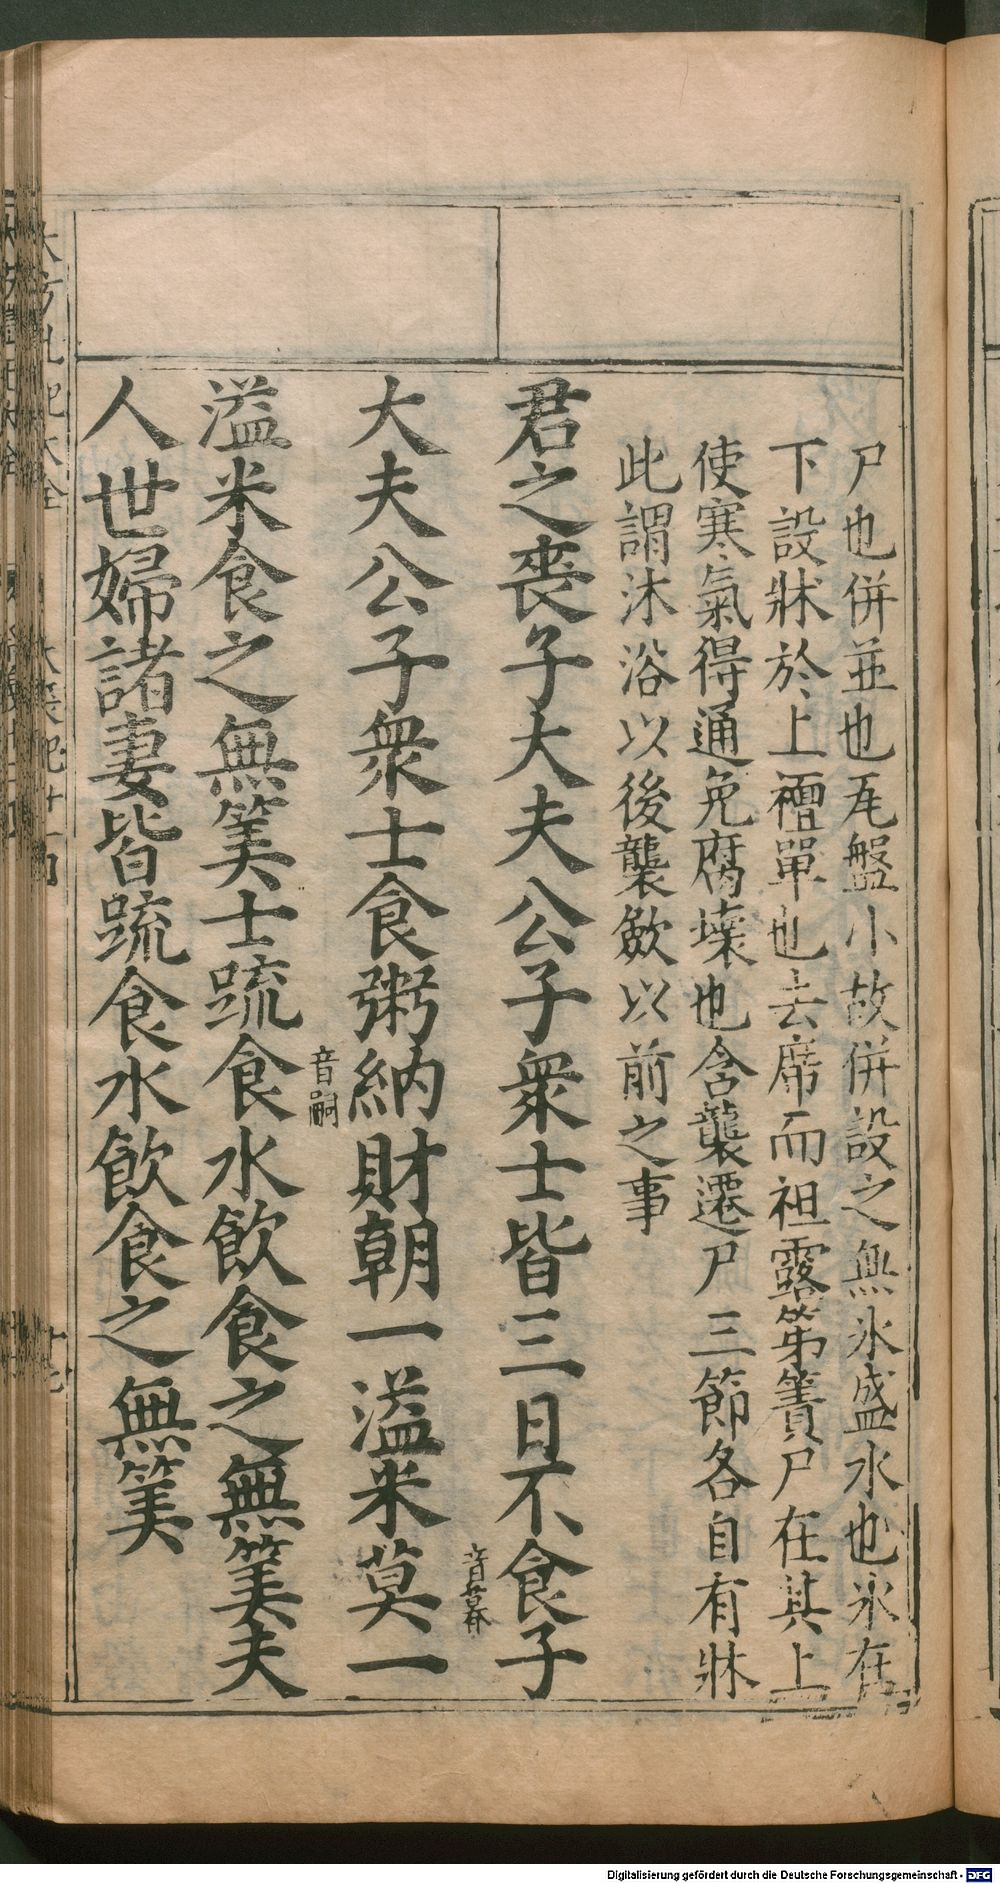 尸也併並也瓦盤小故併設之無氷盛水也氷在
下設牀於上襢單也去席而袒露第簀尸在其上
使寒氣得通免腐壞也含襲遷尸三節各自有牀
此謂沐浴以後襲斂以前之事
君之喪子大夫公子衆士皆三日不食子
大夫公子衆士食粥納財朝一溢米莫一
音暮
溢米食之無筭士疏食水飲食之無筭夫
音嗣
人世婦諸妻皆疏食水飲食之無筭
Digitalisierung gefördert durch die Deutsche Forschungsgemeinschaft - DFG